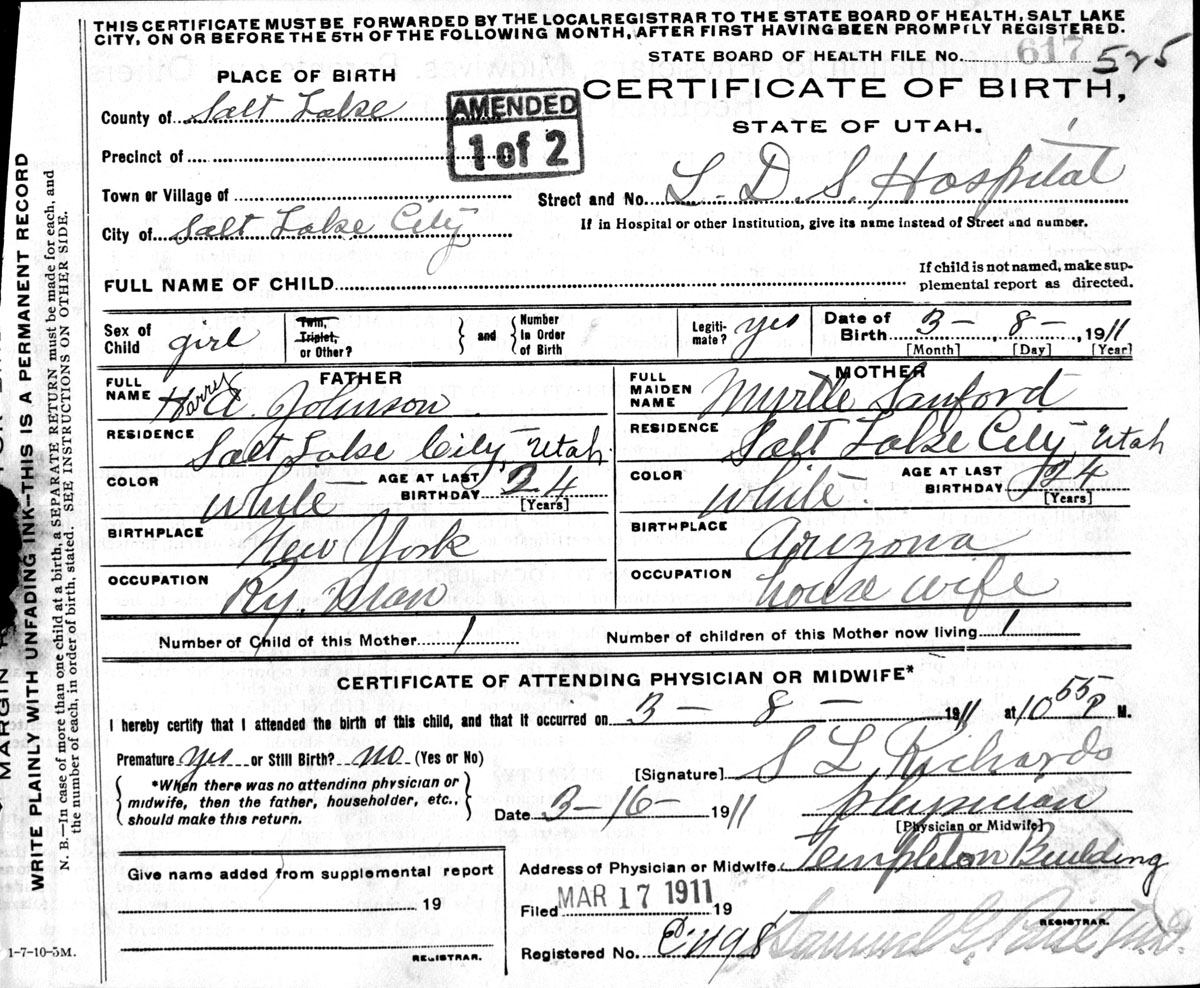 THIS CERTIFICATE MUST BE FORWARDED BY THE LOCAL REGISTRAR TO THE STATE BOARD OF HEALTH, SALT LAKE
CITY, ON OR BEFORE THE 5TH OF THE FOLLOWING MONTH, AFTER FIRST HAVING BEEN PROMPTLY REGISTERED.
STATE BOARD OF HEALTH FILE No. 617 525
PLACE OF BIRTH
CERTIFICATE OF BIRTH,
STATE OF UTAH.
County of Salt Lake
AMENDED
1 of 2
Precinct of
Town or Village of
Street and No. L. D. S. Hospital
City of Salt Lake City
If in Hospital or other Institution, give its name instead of Street and number.
FULL NAME OF CHILD
If child is not named, make sup-
plemental report as directed.
Sex of Child girl
Twin, Triplet, or Other?
and
Number in Order of Birth
Legiti-mate? yes
Date of Birth 3 - 8 -, 1911
[Month] [Day] [Year]
FATHER
FULL NAME Harry A. Johnson
RESIDENCE Salt Lake City, Utah
COLOR White
AGE AT LAST BIRTHDAY 24
[Years]
BIRTHPLACE New York
OCCUPATION Ry. Man
MOTHER
FULL MAIDEN NAME Myrtle Sanford
RESIDENCE Salt Lake City, Utah
COLOR White
AGE AT LAST BIRTHDAY 24
[Years]
BIRTHPLACE Arizona
OCCUPATION house wife
Number of Child of this Mother 1
Number of children of this Mother now living 1
CERTIFICATE OF ATTENDING PHYSICIAN OR MIDWIFE*
I hereby certify that I attended the birth of this child, and that it occurred on 3 - 8 - 1911 at 10 55 P M.
Premature yes or Still Birth? no (Yes or No)
[Signature] S L Richards
*When there was no attending physician or
midwife, then the father, householder, etc.,
should make this return.
Date 3-16- 1911
physician
[Physician or Midwife]
Address of Physician or Midwife Templeton Building
Give name added from supplemental report
19
REGISTRAR.
Filed MAR 17 1911 19
REGISTRAR.
Registered No. 498
Samuel G.
1-7-10-5M.
WRITE PLAINLY WITH UNFADING INK—THIS IS A PERMANENT RECORD
N. B.—In case of more than one child at a birth, a SEPARATE RETURN must be made for each, and
the number of each, in order of birth, stated. SEE INSTRUCTIONS ON OTHER SIDE.
MARGIN